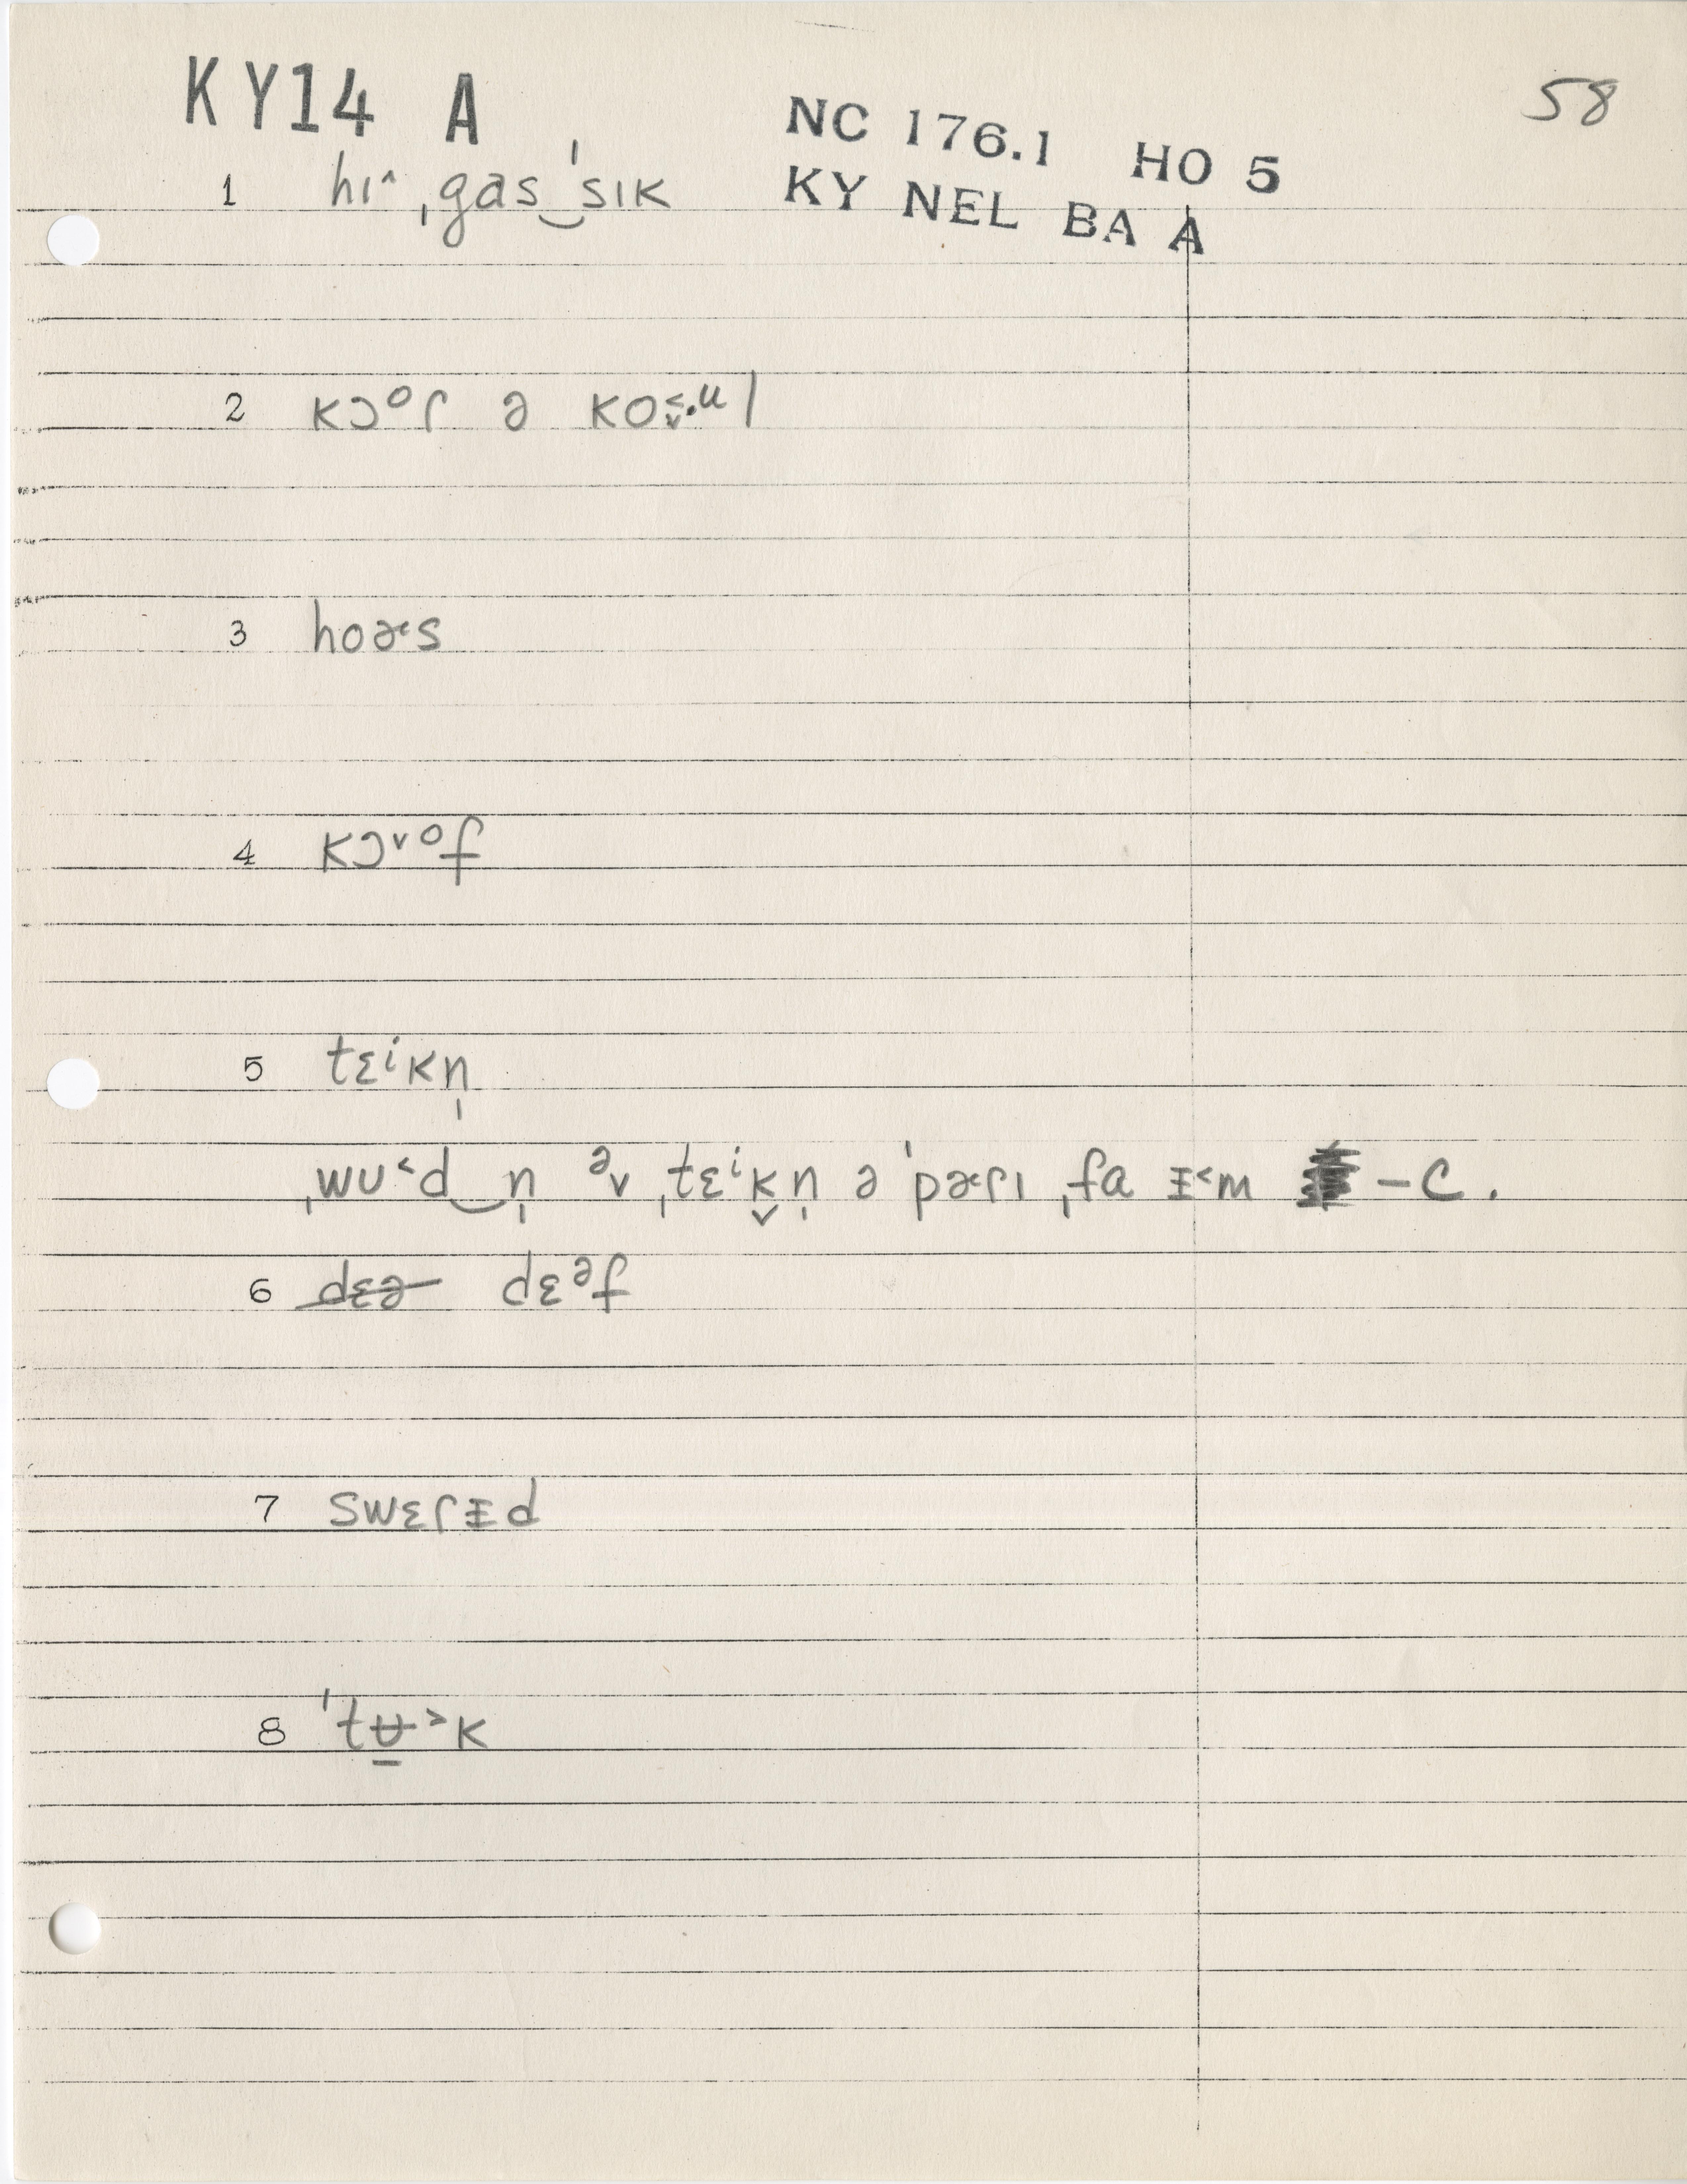 KY14 A
58
NC 176.1 HO 5
KY NEL BA A
1 hɪ˄ ˌgas‿ˈsɪk
2 kɔᵒɾ ə ko˂̬·ᵘl
3 hoɚ˂s
4 kɔ˅ᵒf
5 tɛⁱkn̩
ˌwu˂d‿n̩ ᵊv ˌtɛⁱk̬n̩ ə ˈpɚɾɪ ˌfa ᵻ˂m – C.
6 dɛə dɛᵊf
7 swɛɾᵻd
8 ˈtʉ̱˃k